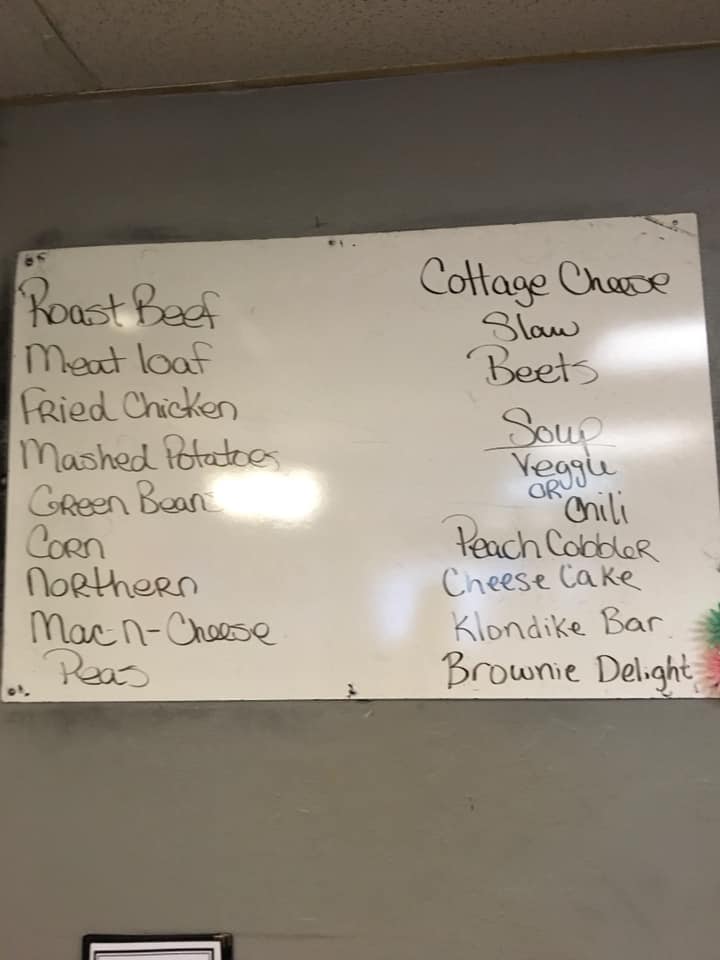 Roast Beef
Meat loaf
Fried Chicken
Mashed Potatoes
Green Beans
Corn
Northern
Mac-n-Cheese
Peas
Cottage Cheese
Slaw
Beets
Soup
Veggie
OR
Chili
Peach Cobbler
Cheese Cake
Klondike Bar
Brownie Delight